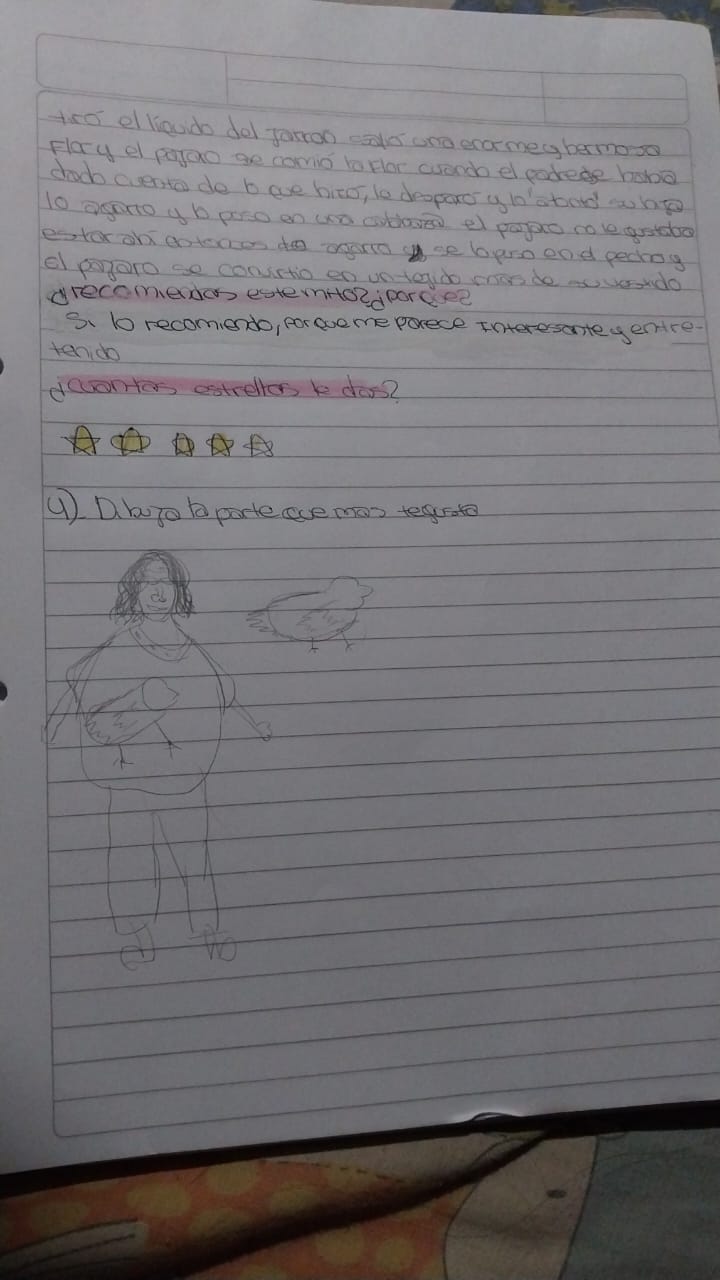 tiró el líquido del jarron salio una enorme y hermosa
Flor y el pajaro se comio la Flor cuando el padre se habia
dado cuenta de lo que hizo, le disparo y lo su hija
lo agarro y lo puso en una el pajaro no le gustaba
estar ahí entonces lo agarro y se lo puso en el pecho y
el pajaro se convirtio en un tejido mas de su vestido
¿recomiendas este mito? ¿por que?
Si lo recomiendo, porque me parece Interesante y entre-
tenido
¿cuantas estrellas le das?
4) Dibuja la parte que mas te gusto